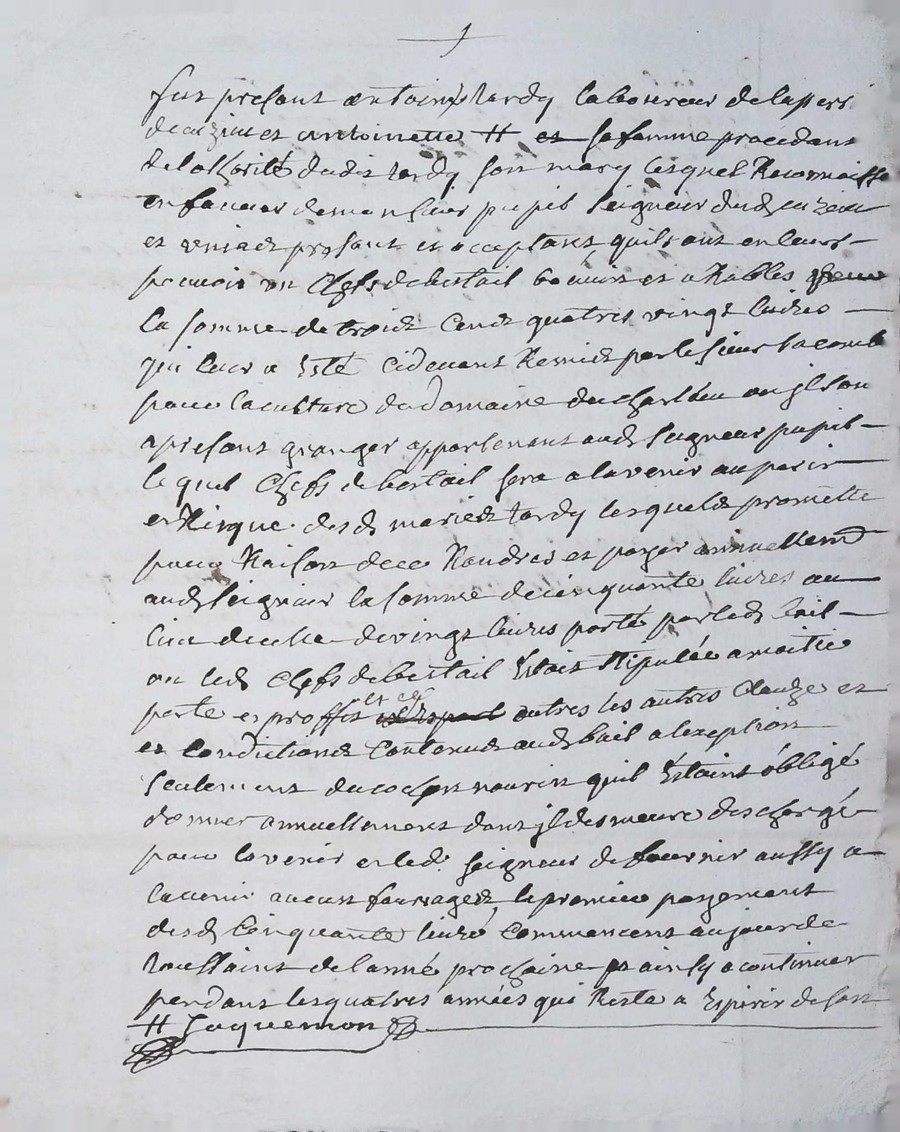 1
fut presant antoine tardy laboureur de la peri
de cuzieu et antoinette # et sa famme procedant
de lothorité dudit tardy son mary lesquel Reconnaisse
en faveur de monsieur pupil seigneur dud cuzieu
et present et acceptant quils ont en leurs
pouvoir un Chefs de bestail bouvine et arables pour
la somme de troids Cends quatres vingt livres
qui leur a Esté cidevant Remies par le sieur lacombe
pour la culture du Domaine du charlieu ou jl son
apresant granger appartenant aud seigneur pupil
lequel Chefs de bestail sera a lavenir au perir
et Risque desd marieds tardy lesquelds promette
pour Raison de ce Randres et payer annuellemt
aud seigneur la somme de cinquante livres au
lieu de celle de vingt livres porté par led bail
ou led Chefs de bestail Estoit stipulée a moitié
perte et proffit et ce outres les autres Clauze et
et Condictions Contenues aud bail a lexeption
seulement du cochon nourin quil Estoint obligé
donner annuellement dont jl demeure deschargé
pour lavenir et led. seigneur de fournir aussy a
lavenir aucun fourraged le premier payement
desd Cinquante livré Commencera au jour de
toussaint de lanné prochaine et ainsy a continuer
pendant les quatres années qui Reste a Expirer de son
# Jaquemon